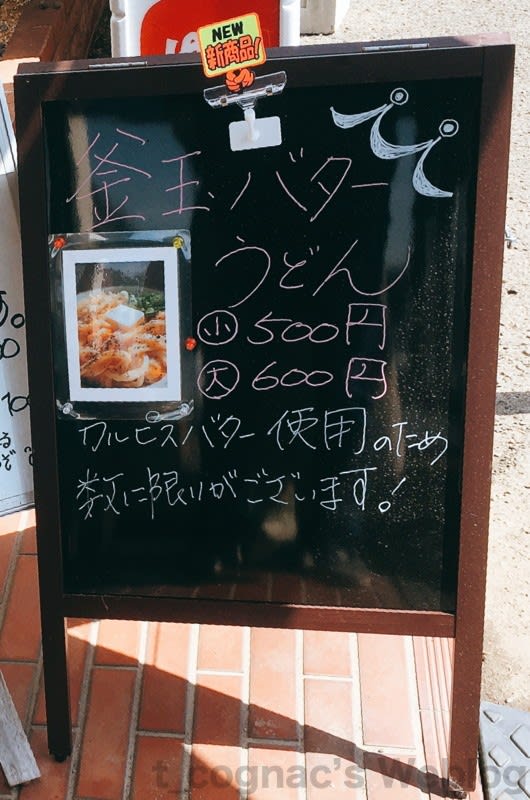 NEW
新商品!
釜玉バター
うどん
小 500円
大 600円
カルピスバター使用のため
数に限りがございます!
t_cognac's Weblog